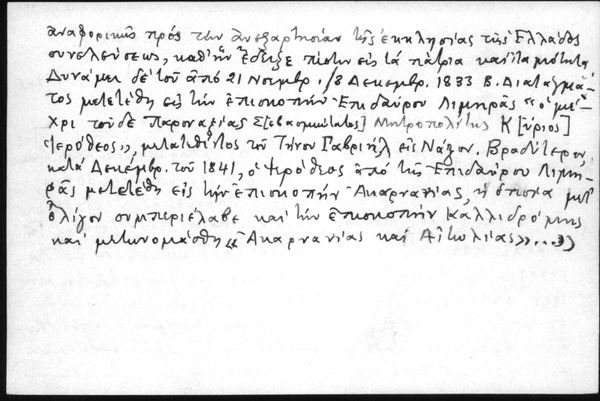 ἀναφορικῶς πρός τήν ἀνεξαρτησίαν τῆς ἐκκλησίας τῆς Ἑλλάδος
συνελεύσεως, καθ' ἥν ἔδειξε πίστιν εἰς τά πάτρια καί
Δυνάμει δέ τοῦ ἀπό 21 Νοεμβρ. /3 Δεκεμβρ. 1833 Β. Διατάγμα-
τος μετετέθη εἰς τήν ἐπισκοπήν Ἐπιδαύρου Λιμηρᾶς "ὁ μέ-
χρι τοῦδε Παροναξίας Σ[εβασμιώτατος] Μητροπολίτης Κ[ύριος]
Ἱερόθεος", μετατεθέντος τοῦ Τήνου Γαβριήλ εἰς Νάξον. Βραδύτερον,
κατά Δεκέμβρ. τοῦ 1841, ὁ Ἱερόθεος ἀπό τῆς Ἐπιδαύρου Λιμη-
ρᾶς μετετέθη εἰς τήν ἐπισκοπήν Ἀκαρνανίας, ἡ ὁποία μετ'
ὀλίγον συμπεριέλαβε καί τήν ἐπισκοπήν Καλλιδρόμης
καί μετωνομάσθη «Ἀκαρνανίας καί Αἰτωλίας»...»)